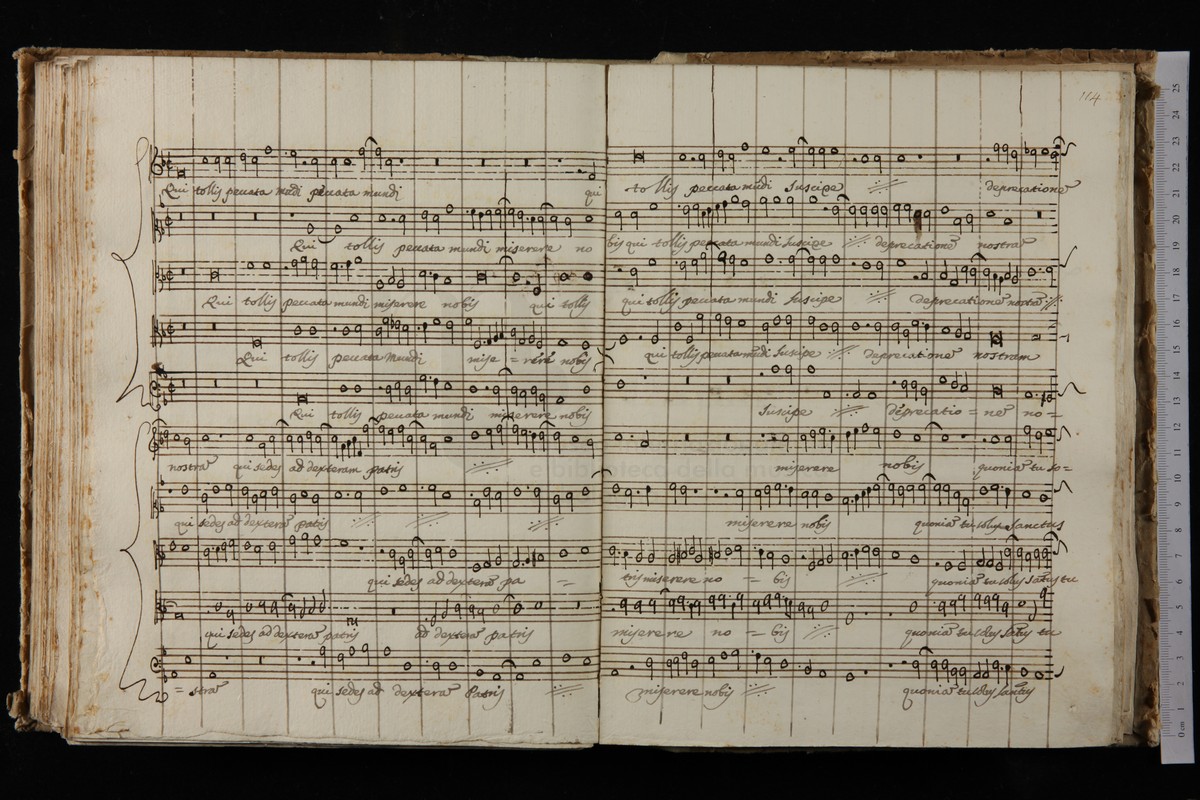 114
Qui tollis peccata mūdi peccata mundi qui tollis peccata mūdi suscipe deprecatione
Qui tollis peccata mundi miserere nobis qui tollis peccata mundi suscipe deprecationē nostrā
Qui tollis peccata mundi miserere nobis qui tollis qui tollis peccata mundi suscipe deprecationē nostrā
Qui tollis peccata mundi mise = rere nobis qui tollis peccata mūdi suscipe deprecationē nostram
Qui tollis peccata mundi miserere nobis suscipe deprecatio = nē no =
nostrā qui sedes ad dexteram patris miserere nobis quoniā tu so =
qui sedes ad dexterā patris miserere nobis quoniā tu solus sanctus
qui sedes ad dexterā pa = tris miserere no = bis quoniā tu solus sātus tu
qui sedes ad dexterā patris ad dexterā patris miserere no = bis quoniā tu solus sātus tu
= strā qui sedes ad dexterā Patris miserere nobis quoniā tu solus sanctus